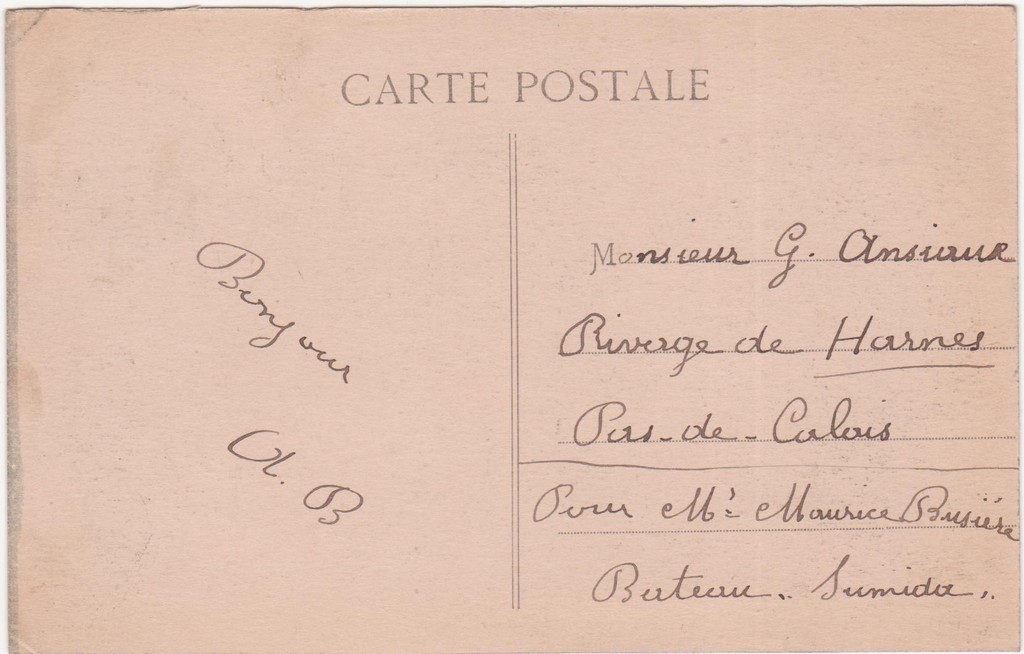 CARTE POSTALE
Bonjour
A. B
Monsieur G. Ansiaux
Rivage de Harnes
Pas-de-Calais
Pour Mr Maurice Busière
Bateau "Sumida"